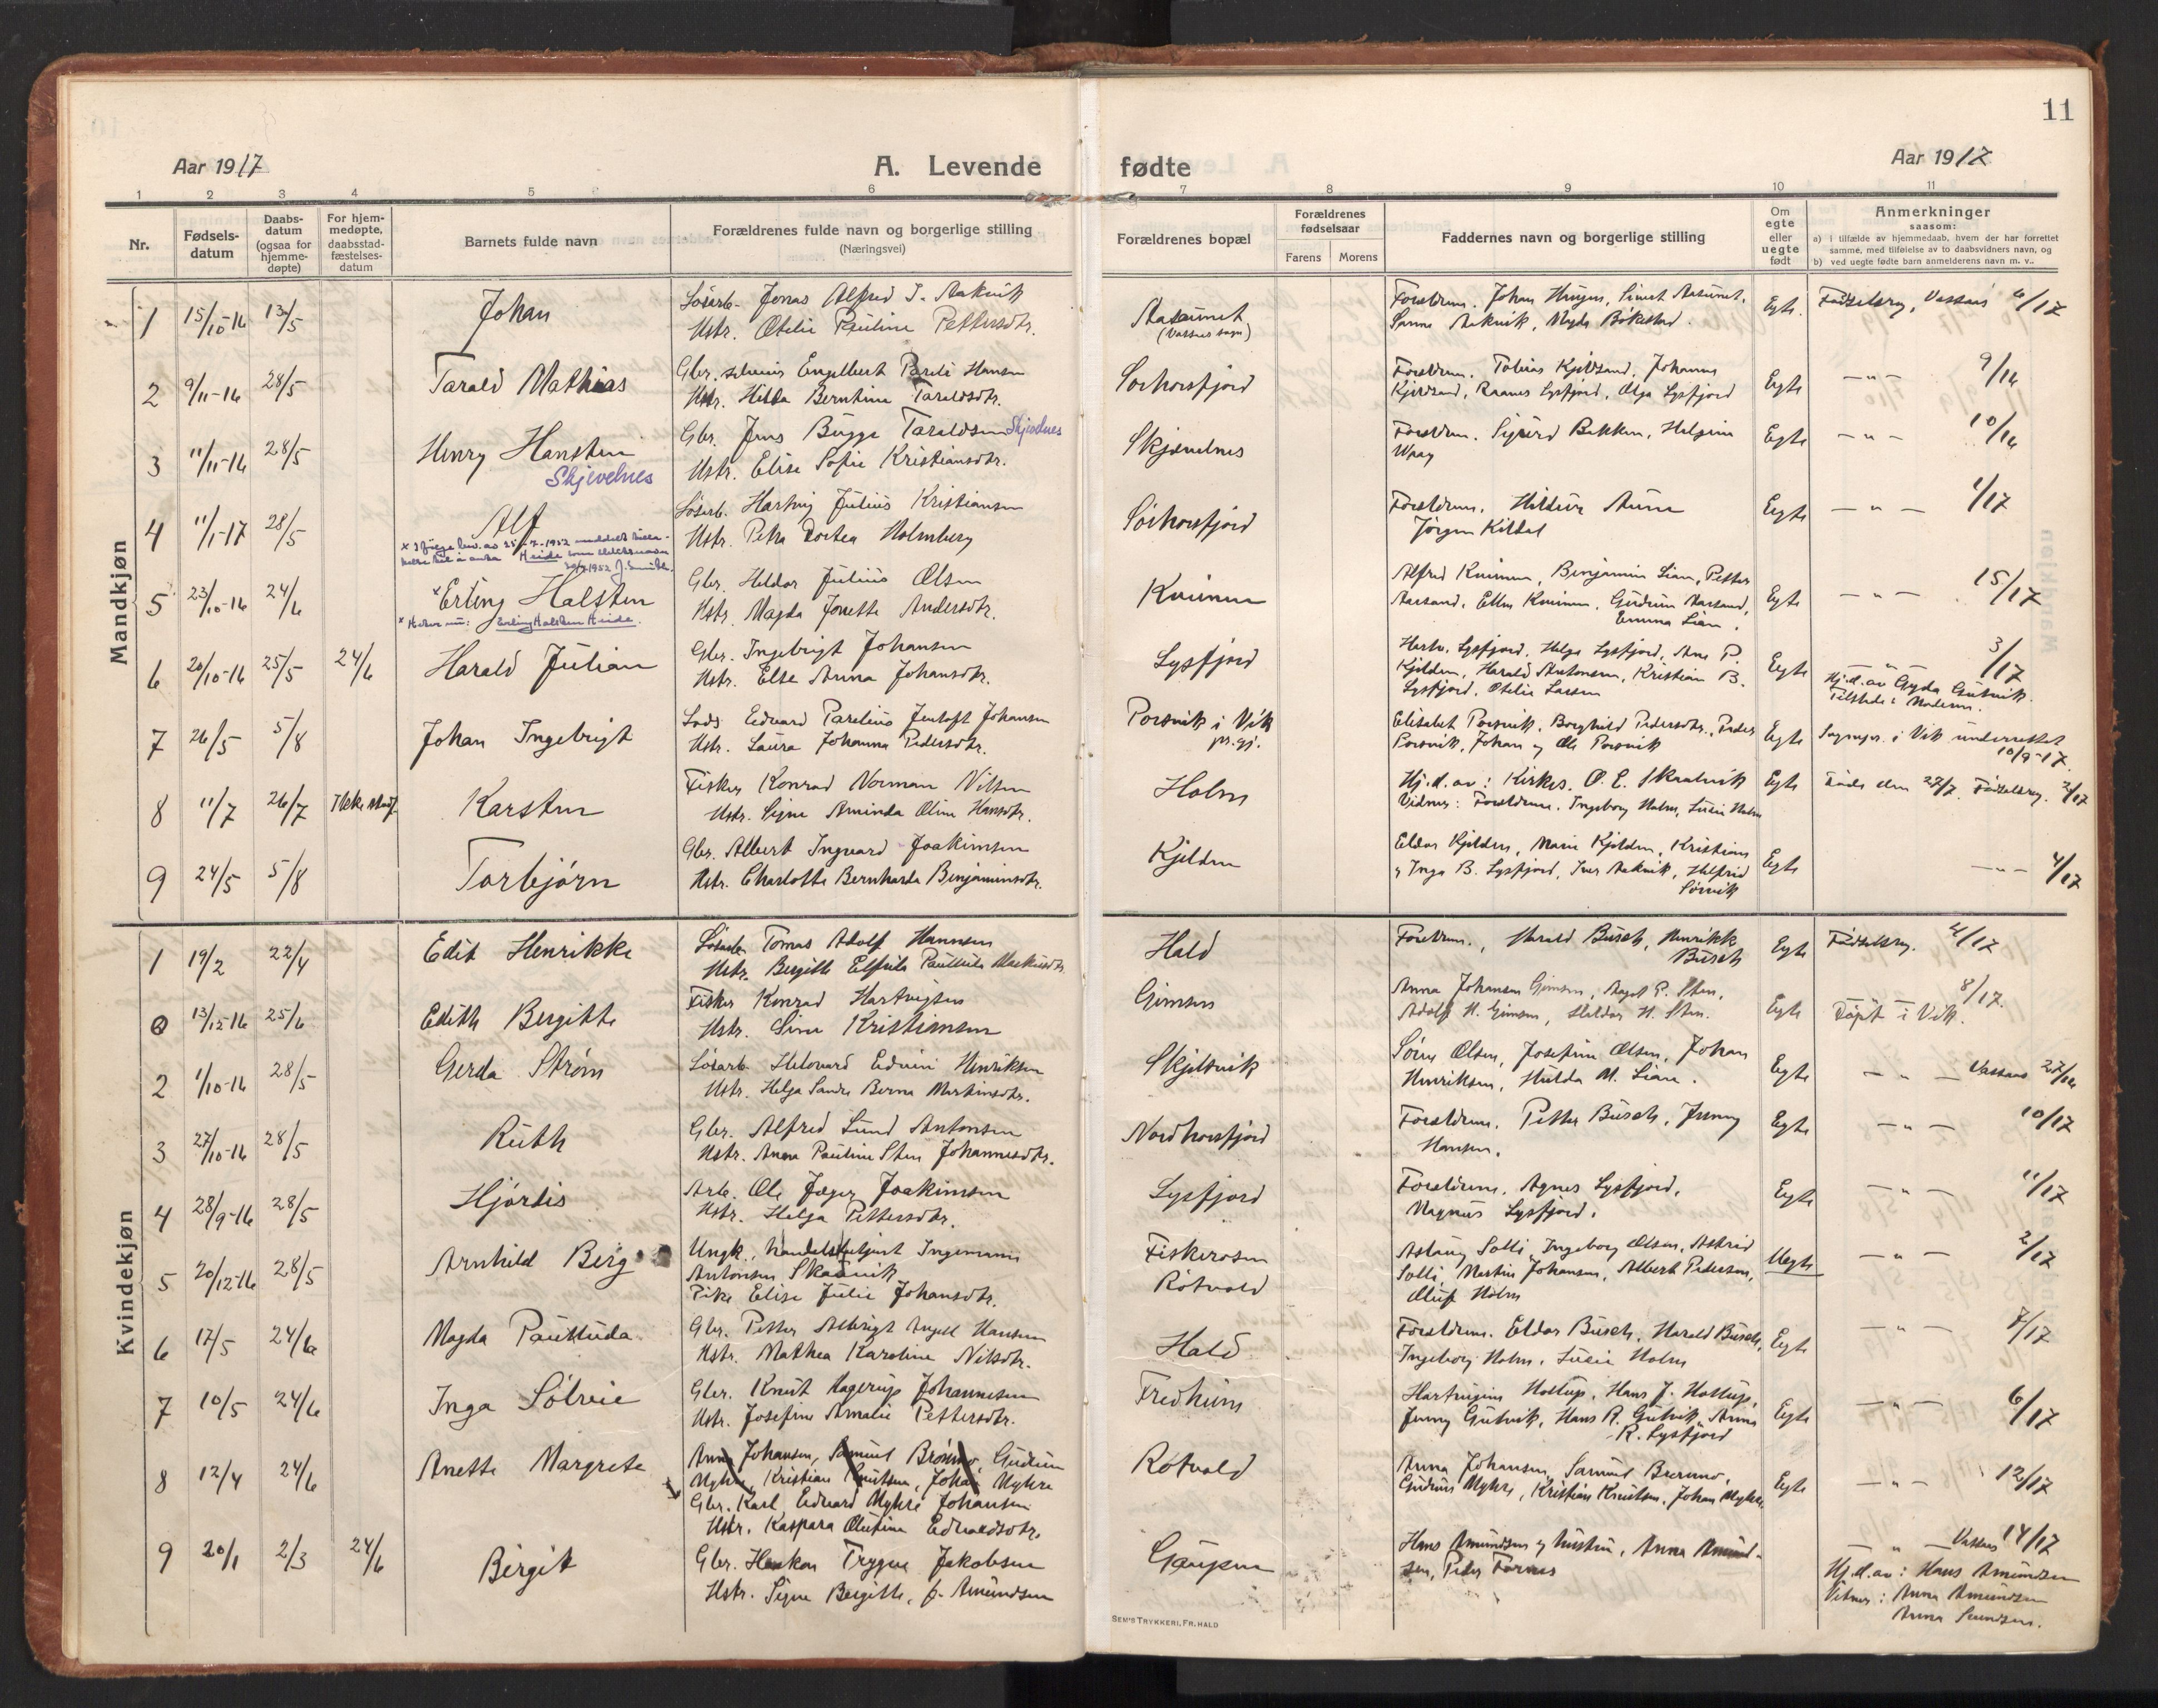 11
Aar 1917
A. Levende
fødte
Aar 1917
1 2 3 4 5 6 7 8 9 10 11
Nr.
Fødsels-
datum
Daabs-
datum
(ogsaa for
hjemme-
døpte)
For hjem-
medøpte,
daabsstad-
fæstelses-
datum
Barnets fulde navn
Forældrenes fulde navn og borgerlige stilling
(Næringsvei)
Forældrenes bopæl
Forældrenes
fødselsaar
Farens Morens
Faddernes navn og borgerlige stilling
Om
egte
eller
uegte
født
Anmerkninger
saasom:
a) i tilfælde av hjemmedaab, hvem der har forrettet
samme, med tilføielse av to daabsvidners navn, og
b) ved uegte fødte barn anmelderens navn m. v..
Mandkjøn
1 15/10-16 13/5 Johan
Løsarb. Jonas Alfred J. Aakvik
Hstr. Otelie Pauline Pettersdtr.
Aasunet
(Vassaas sogn)
Foreldrene. Johan Aasunet.
Sanna Aakvik, Magda
Egte. Fødselsreg. Vassaas 6/17
2 9/11-16 28/5 Tarald Mathias
Gbr. Engelbert Pareli Hansen
Hstr. Hilda Berntine Taraldsdtr.
Sørhorsfjord
Foreldrene. Tobias Kjeldsand, Johanna
Kjeldsand, Ragnar Lysfjord, Olga Lysfjord
Egte — " — 9/16
3 11/11-16 28/5 Henry Hansten
Skjevelnes
Gbr. Jens Bugge Taraldsen Skjevelnes
Hstr. Elise Sofie Kristiansdtr.
Skjævelnes
Foreldrene. Sigurd Bakken, Helgine
Waag
Egte — " — 10/16
4 11/1-17 28/5 Alf
Løsarb. Hartvig Julius Kristiansen
Hstr. Petra Dortea Holmberg
Sørhorsfjord
Foreldrene. Hildur Aune
Jørgen Kildal
Egte — " — 1/17
x Ifølge bev. av 25-7-1952 meddelt tilla-
telse til å anta Heide som slektsnavn
J. Smith.
5 23/10-16 24/6 x Erling Halsten
x Heter nu: Erling Halsten Heide.
Gbr. Heldor Julius Olsen
Hstr. Magda Jonette Andersdtr.
Kvinnen
Alfred Kvinnen, Benjamin Lian, Petter
Aarsand, Ellen Kvinnen, Gudrun Aarsand,
Emma Lian.
Egte — " — 15/17
6 20/10-16 25/5 24/6 Harald Julian
Gbr. Ingebrigt Johansen
Hstr. Else Anna Johansdtr.
Lysfjord
Lysfjord, Helga Lysfjord, Ane P.
Kjelden, Harald Antonsen, Kristian B.
Lysfjord, Otelie Larsen
Egte — " — 3/17
Hj.d. av Gyda Gutvik.
Tilstede: Moderen.
7 26/5 5/8 Johan Ingebrigt
Lods Edvard Parelius Jentoft Johansen
Hstr. Laura Johanna Pedersdtr.
Porsvik i Vik
pr.gj.
Elisabet Porsvik, Borghild Pedersdtr., Peder
Porsvik, Johan og Ole Porsvik
Egte Sognepr. i Vik underrettet
10/9-17.
8 11/7 26/7 Ikke stadf. Karsten
Fisker Konrad Norman Nilsen
Hstr. Signe Aminda Oline Hansdtr.
Holm
Hj.d. av: Kirkes. O. E. Skralvik
Vidner: Foreldrene. Ingeborg Holm, Lucie Holm
Egte Døde den 27/7. Fødselsreg. 2/17
9 24/5 5/8 Torbjørn
Gbr. Albert Ingvard Joakimsen
Hstr. Charlotte Bernharda Benjaminsdtr.
Kjelden
Eldar Kjelden, Marie Kjelden, Kristian
og Inga B. Lysfjord, Iver Aakvik, Helfrid
Sørvik
Egte — " — 4/17
Kvindekjøn
1 19/2 22/4 Edit Henrikke
Løsarb. Tomas Adolf Hannesen
Hstr. Bergitte Elfrida Paulluda Markusdtr.
Hald
Foreldrene., Harald Busch, Henrikk
Busch
Egte Fødselsreg. 4/17
0 13/12-16 25/6 Edith Bergitte
Fisker Konrad Hartvigsen
Hstr. Sina Kristiansen
Gimsen
Anna Johansen Gimsen, Aagot P. Sten,
Adolf H. Gimsen, Haldor H. Sten.
Egte — " — 8/17.
Døpt i Vik.
2 1/10-16 28/5 Gerda Strøm
Løsarb. Hildovard Edvin Henriksen
Hstr. Helga Sandra Berna Martinsdtr.
Skjelsvik
Sørine Olsen, Josefine Olsen, Johan
Henriksen, Hulda M. Lian.
Egte — " — Vassaas 27/16
3 27/10-16 28/5 Ruth
Gbr. Alfred Lund Antonsen
Hstr. Anna Pauline Sten Johannesdtr.
Nordhorsfjord
Foreldrene. Petter Busch, Jenny
Hansen.
Egte — " — 10/17
4 28/9-16 28/5 Hjørdis
Arb. Ole Jæger Joakimsen
Hstr. Helga Pettersdtr.
Lysfjord
Foreldrene. Agnes Lysfjord,
Magnus Lysfjord.
Egte — " — 11/17
5 20/12-16 28/5 Arnhild Berg
Ungk. handelsbetjent Ingemann
Antonsen Skaavik
Pike Elise Julie Johansdtr.
Fiskerosen
Røtvold
Aslaug Solli, Ingeborg Olsen, Astrid
Solli, Martin Johansen, Albert Pedersen,
Oluf Holm
Uegte — " — 2/17
6 17/5 24/6 Magda Paulluda
Gbr. Petter Albrigt Angell Hansen
Hstr. Mathea Karoline Nilsdtr.
Hald
Foreldrene. Eldar Busch, Harald Busch,
Ingeborg Holm, Lucie Holm
Egte — " — 7/17
7 10/5 24/6 Inga Sølvie
Gbr. Knut Hagerup Johannesen
Hstr. Josefine Amalie Pettersdtr.
Fredheim
Hartvigine Hollup, Hans J. Hollup,
Jenny Gutvik, Hans R. Gutvik, Anna
R. Lysfjord
Egte — " — 6/17
8 12/4 24/6 Anette Margrete
Anna Johansen, Samuel Brønmo, Gudrun
Myhre, Kristian Knutsen, Johan Myhre
Gbr. Karl Edvard Myhre Johansen
Hstr. Kaspara Olufine Edvardsdtr.
Røtvold
Anna Johansen, Samuel Brønmo,
Gudrun Myhre, Kristian Knutsen, Johan Myhre
Egte — " — 12/17
9 20/1 2/3 24/6 Birgit
Gbr. Haakon Trygve Jakobsen
Hstr. Signe Bergitte, f. Amundsen
Gaupen
Hans Amundsen og hustru, Anna Amund-
sen, Peder Fornes
— " — Vassaas 14/17
Hj.d. av: Hans Amundsen
Vitner: Anna Amundsen
Anna Svendsen.
SEM'S TRYKKERI, FR. HALD